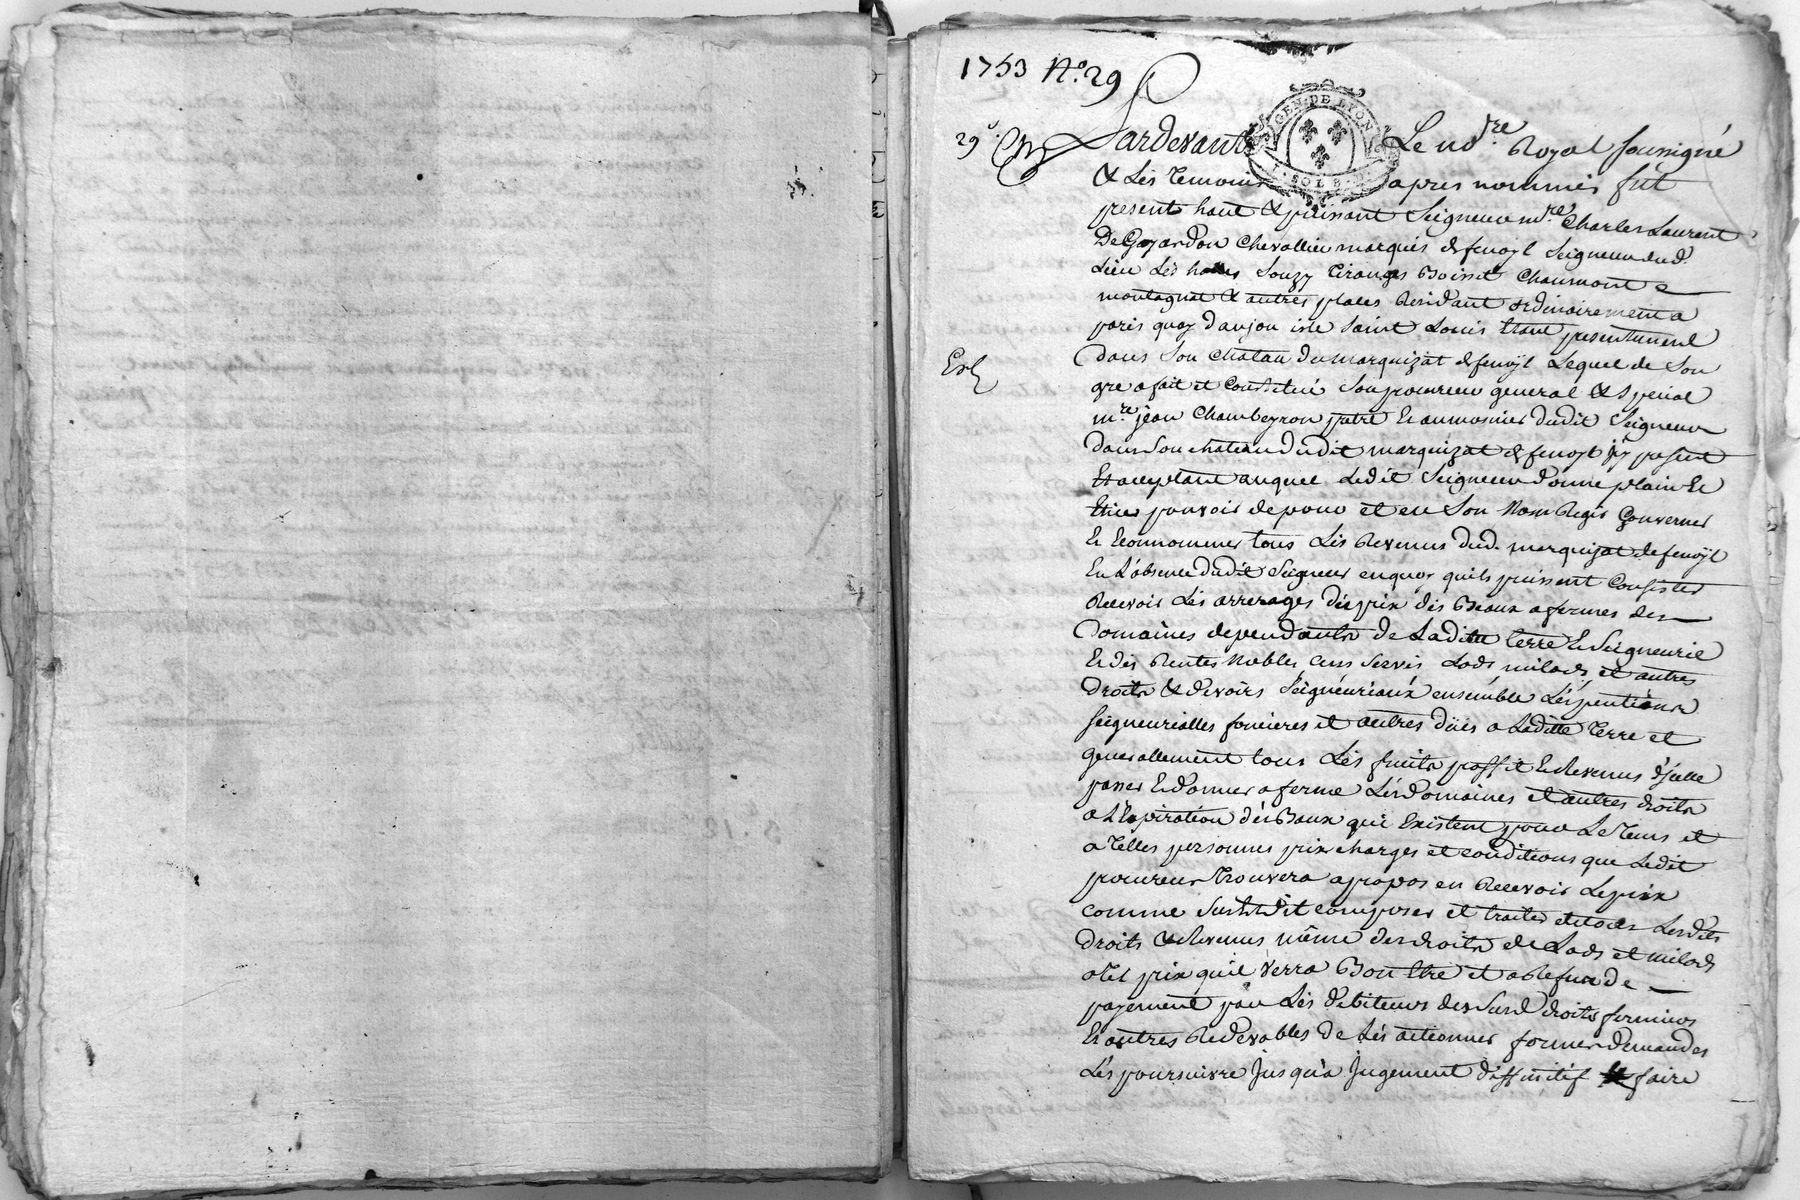 1753 N.o 29
29e
GEN. DE LYON
1. SOL 8. D.
Pardevant Le no.re Royal soussigné
& Les Temoins apres nommés fut
present haut & puissant Seigneur m.re Charles Laurent
De Gayardon Chevallier marquis de fenoyl Seigneur dud.
Lieu Les halles Souzy Tiranges Boisset Chaumont
montagnat & autres places Residant ordinairement a
paris quay d'anjou isle saint Louis Etant presentement
dans son chatau du marquizat de fenoyl Lequel de Son
Exp
gre a fait et Constitué Son procureur general & special
m.re jean Chambeyron pretre Et aumosnier dudit Seigneur
dans son chateau dudit marquizat de fenoyl jcy present
Et acceptant auquel Ledit Seigneur donne plain Et
Etier pouvoir de pour et en Son Nom Regir Gouverner
Et Econnommer tous Les Revenus dud. marquizat de fenoyl
En L'absence dudit Seigneur en quoy qu'ils puissent Consister
Recevoir Les arrerages des prix des Beaux a fermes des
Domaines dependants de Laditte terre Et Seigneurie
Et des Rentes Nobles Cens Servis Lods milods et autres
droits & devoirs Seigneuriaux ensemble Les pentions
seigneurialles foncieres et autres dües a Laditte Terre et
generallement tous Les fruits proffit Et Revenus d'jcelle
passer Et donner a ferme Les domaines et autres droits
a L'Expiration des Baux qui Existent pour Le Tems et
a Telles personnes prix charges et conditions que Ledit
procureur Trouvera apropos en Recevoir Le prix
comme Susdit composer et traiter de tous Lesdits
droits & Revenus même des droits de Lods et milods
a Tel prix qu'il verra Bon Etre et a Refus de
payement par Les debiteurs des Susd. droits fermiers
Et autres Redevables de Les actionner former demandes
Les poursuivre Jusqu'a Jugement deffinitif faire